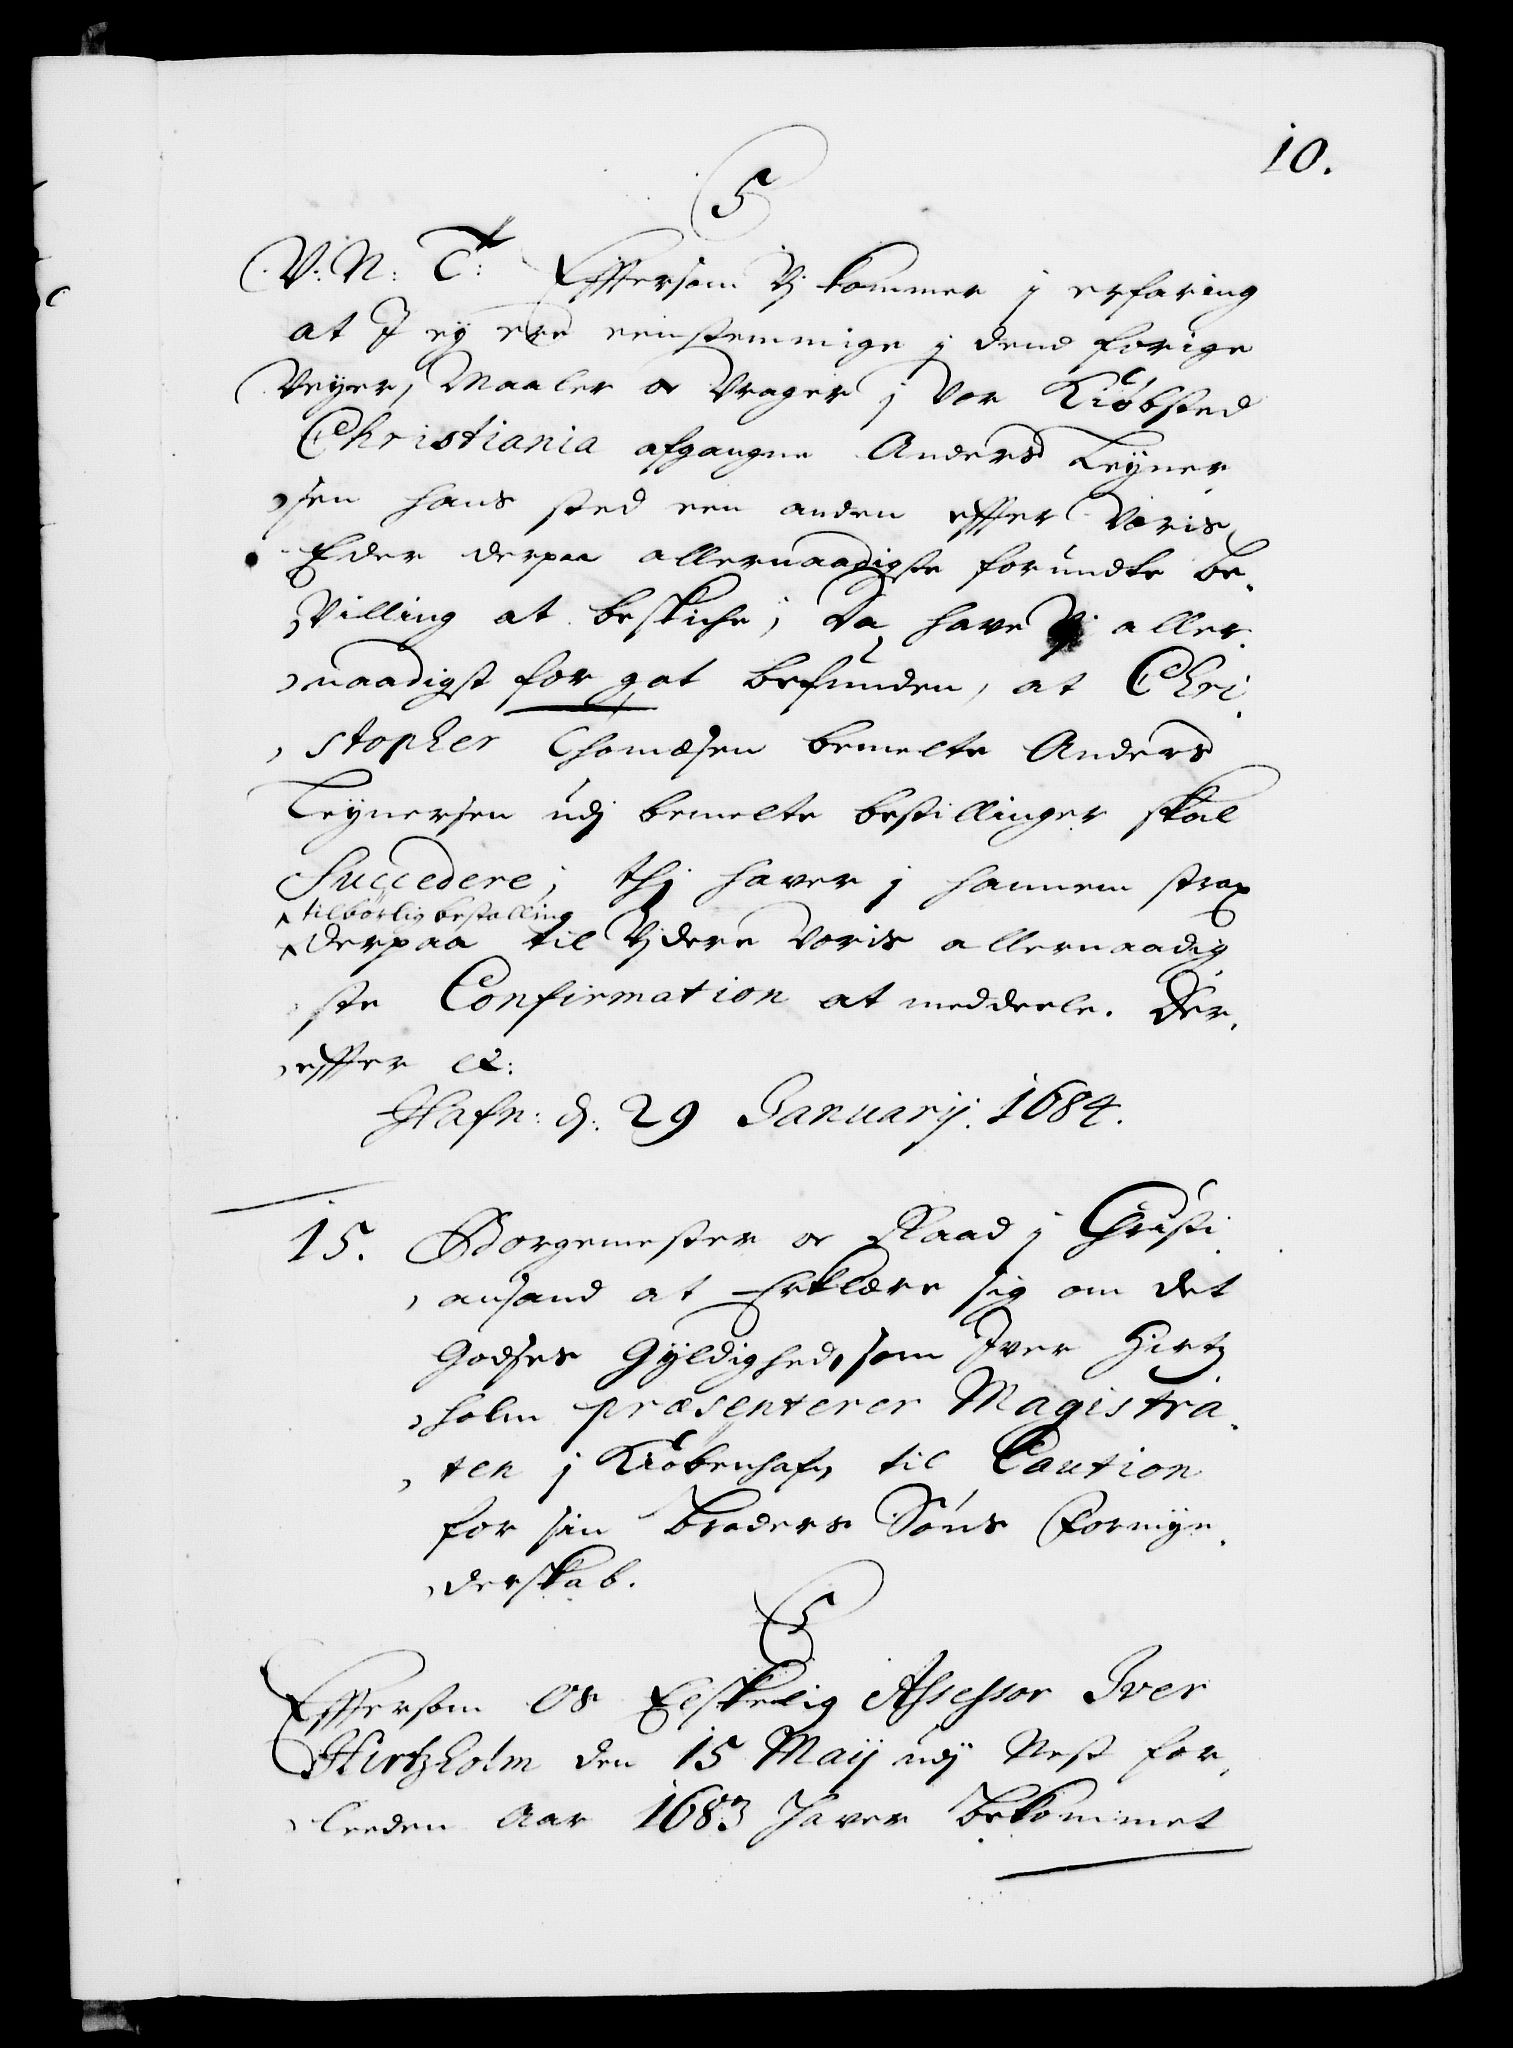 10.
5
V: N: C: Effersom Vj kommer j erfaring
at J ey ere eenstemmige j dend forige
Veyer, Maaler oc Vrager j Vor Kiöbsted
Christiania afgangne Anders Leyner,
sen hans sted een anden effter Voris,
Eder derpaa allernaadigste forundte be,
Villing at beskiche; Da have Vj aller,
naadigst for got befunden, at Chri,
stopher Thomæsen bemelte Anders
Leynersen udj bemelte bestillinger skal
Succedere; thj haver j hannem strax
tilbörlig bestalling
derpaa til Vjdere Voris allernaadig
ste Confirmation at meddeele. Der,
effter etc:
Hafn: d: 29 Januarij. 1684.
15. Borgemester oc Raad j Christi
ansand at Erklære sig om det
Godses Gyldighed, som Iver Hirtz
holm præsenterer Magistra,
ten j Kiöbenhafn til Caution
for sin Broders Söns Formyn,
derskab.
5
Effersom Os Elskelig Assessor Iver
Hirtzholm den 15 Maij udj Nest for,
leeden Aar 1683 haver bekommet